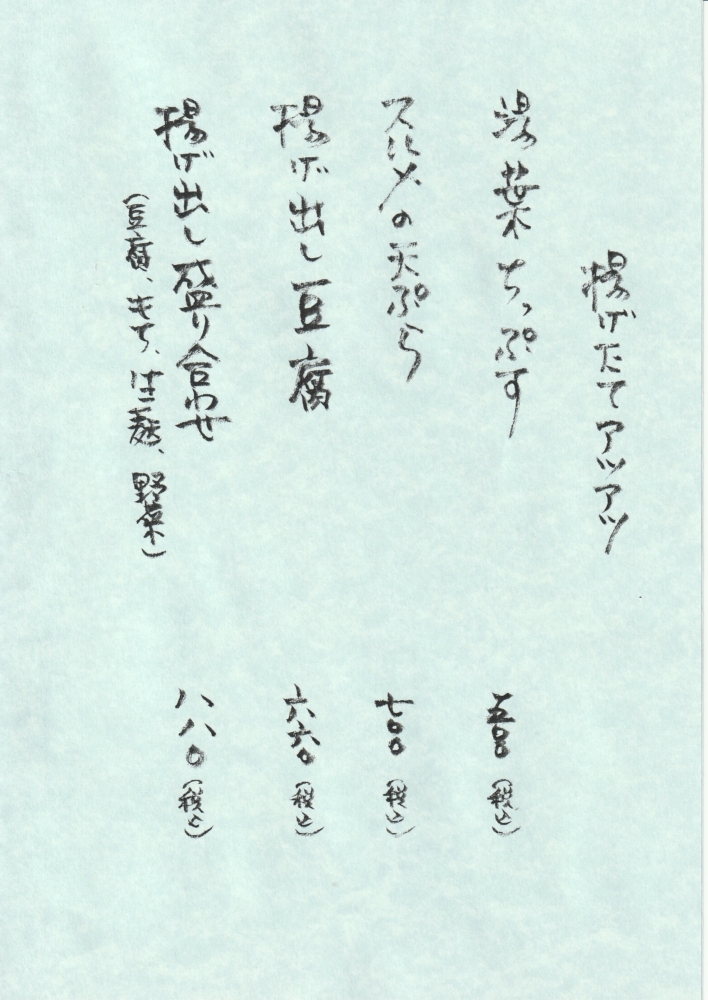 揚げたてアツアツ
湯葉ちっぷす 五〇〇(税込)
スルメの天ぷら 七〇〇(税込)
揚げ出し豆腐 六六〇(税込)
揚げ出し盛り合わせ 八八〇(税込)
(豆腐、もち、はこ麩、野菜)